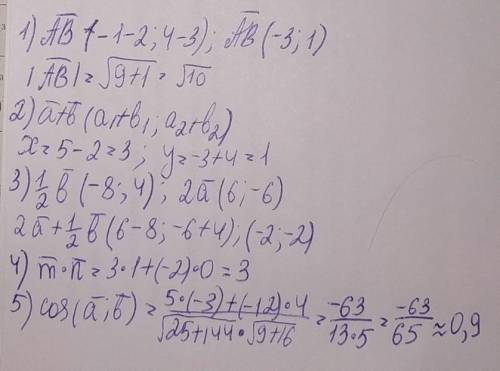 1) AB (-1-2; 4-3); AB (-3; 1)
|AB| = √9+1 = √10
2) a+b (a₁+b₁; a₂+b₂)
x = 5-2=3; y = -3+4=1
3) 1/2 b (-8; 4); 2a (6; -6)
2a + 1/2 b (6-8; -6+4); (-2; -2)
4) m·n = 3·1+(-2)·0 = 3
5) cos(a; b) = 5·(-3)+(-12)·4 / √25+144·√9+16 = -63 / 13·5 = -63 / 65 ≈ 0,9